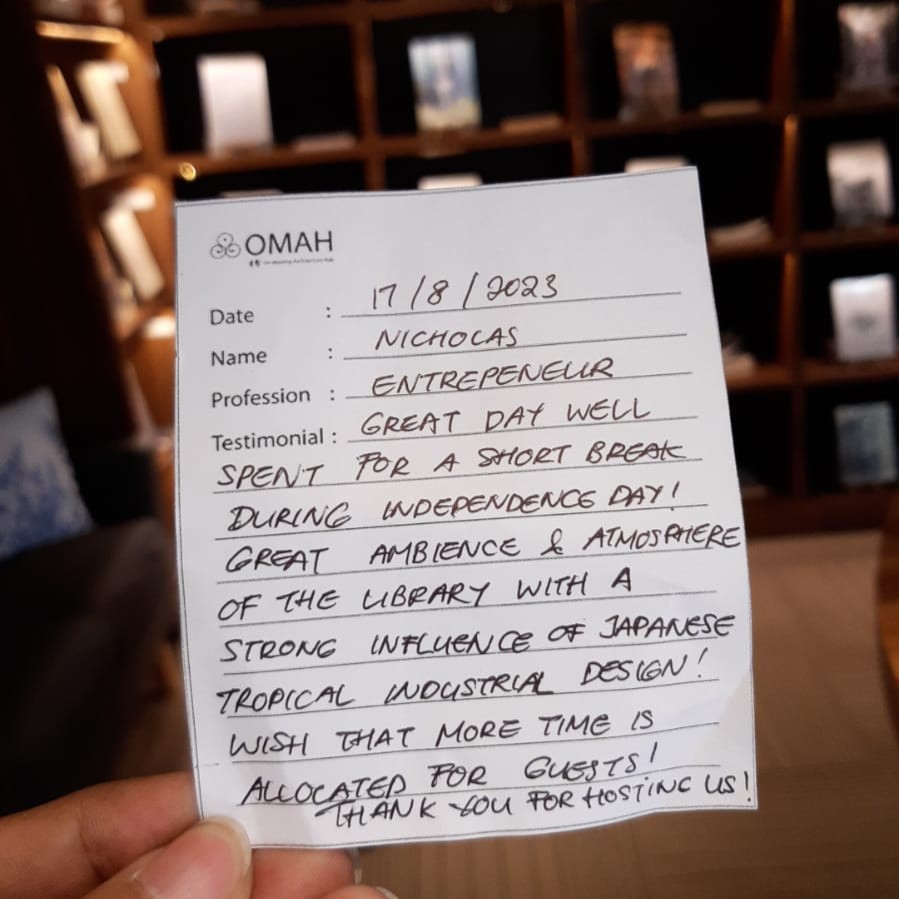 OMAH
Date : 17/8/2023
Name : NICHOLAS
Profession : ENTREPENEUR
Testimonial : GREAT DAY WELL
SPENT FOR A SHORT BREAK
DURING INDEPENDENCE DAY!
GREAT AMBIENCE & ATMOSPHERE
OF THE LIBRARY WITH A
STRONG INFLUENCE OF JAPANESE
TROPICAL INDUSTRIAL DESIGN!
WISH THAT MORE TIME IS
ALLOCATED FOR GUESTS!
THANK YOU FOR HOSTING US!